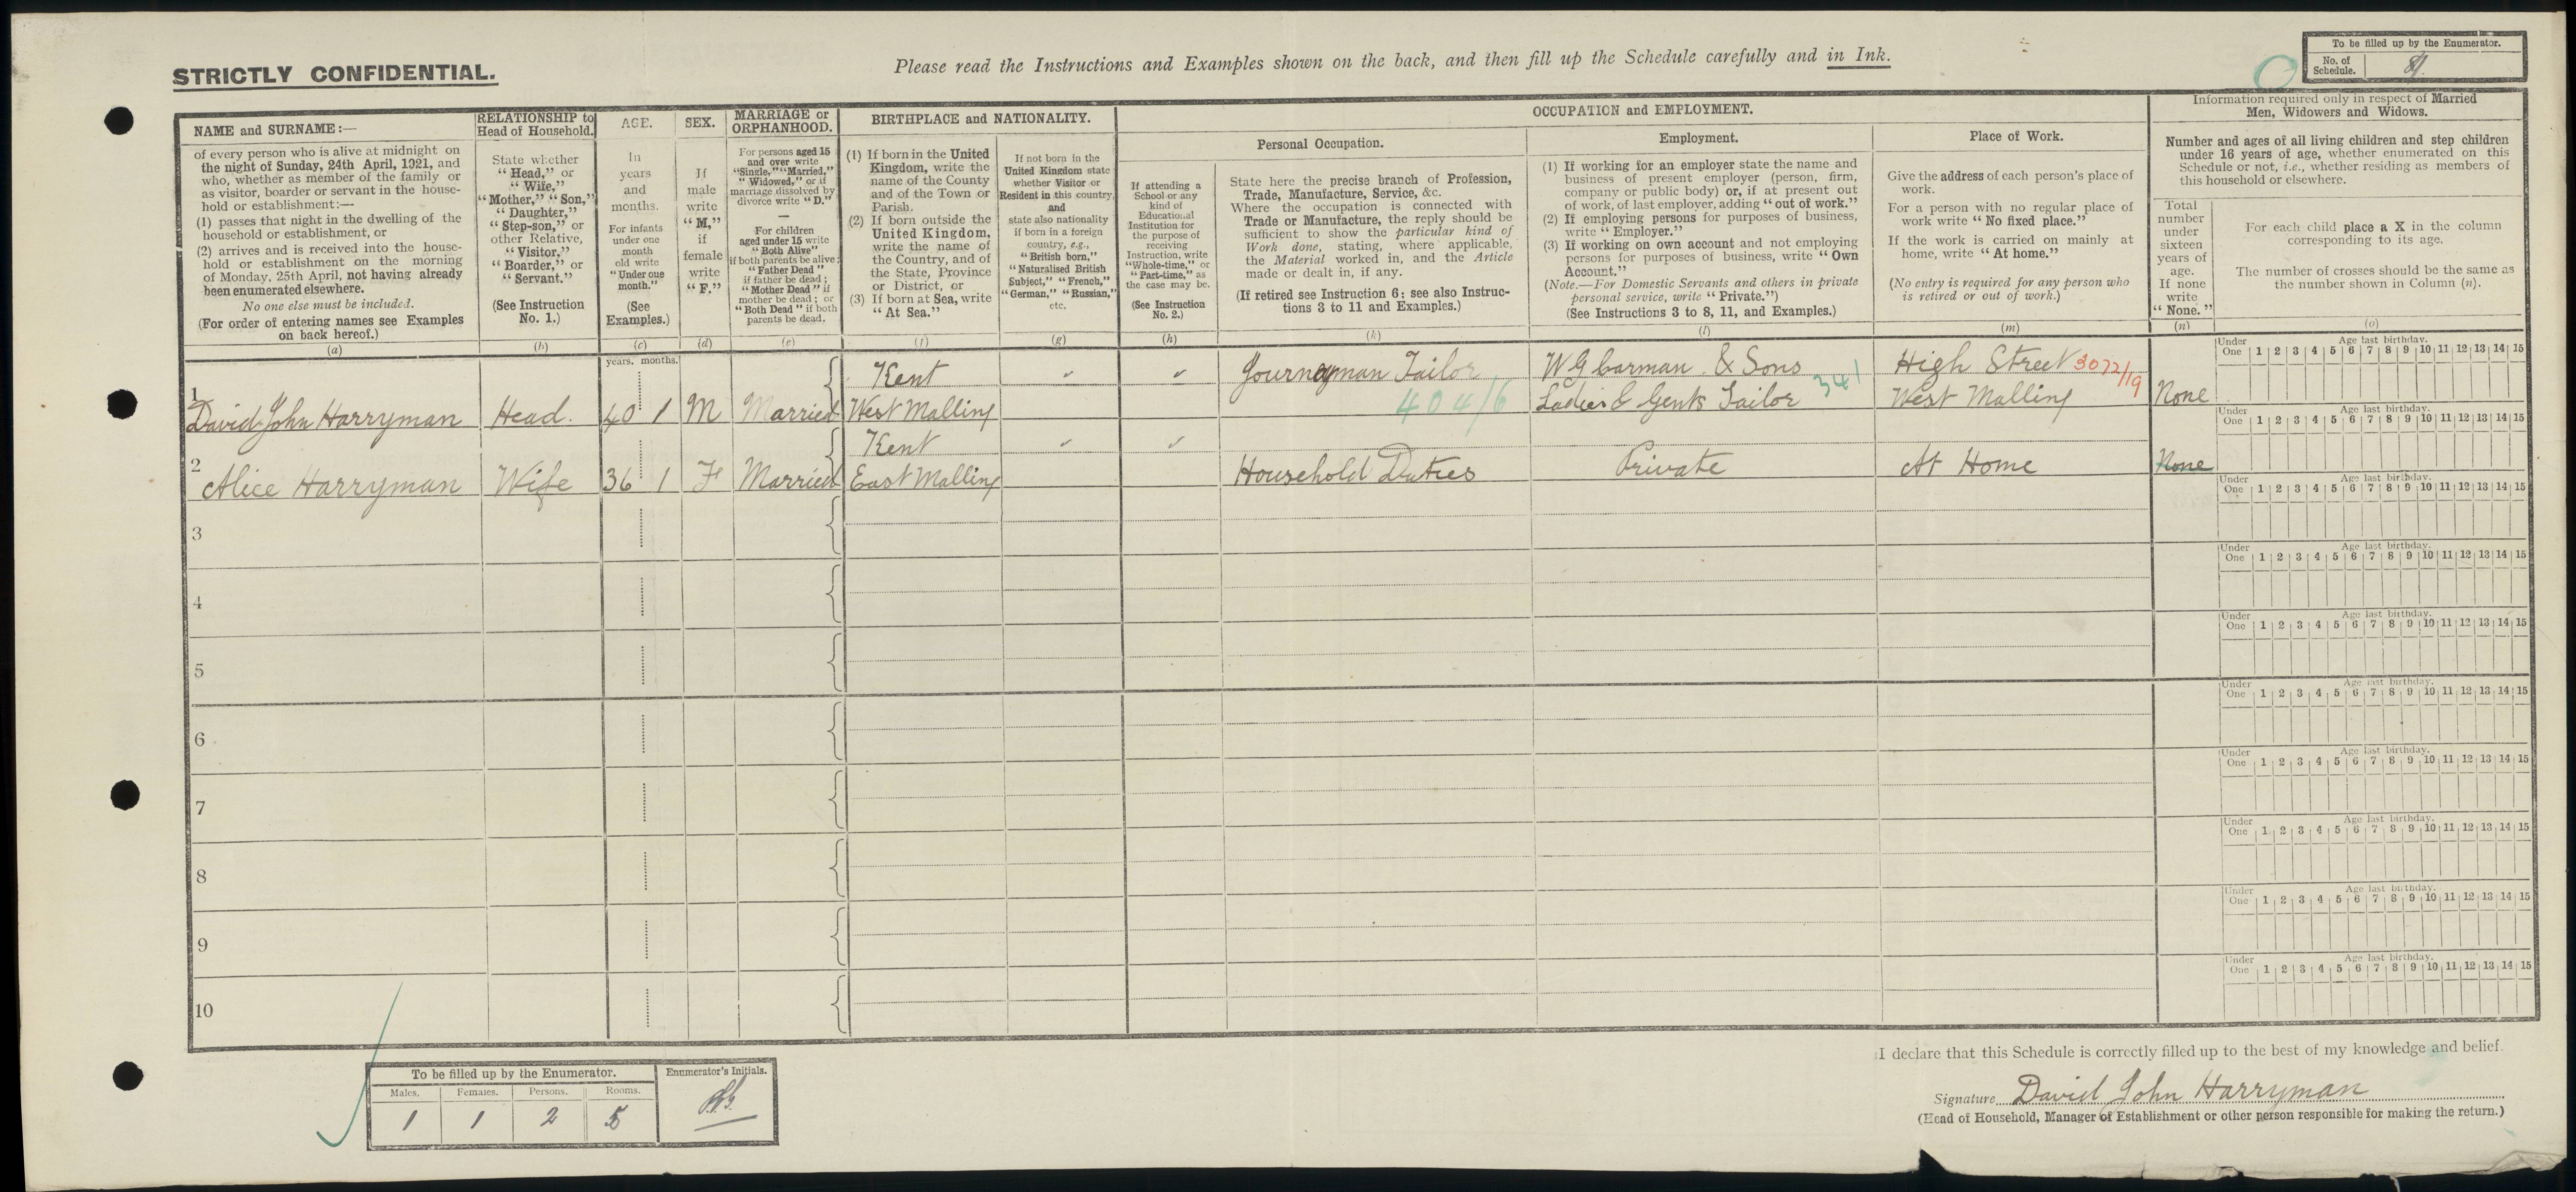 STRICTLY CONFIDENTIAL.
Please read the Instructions and Examples shown on the back, and then fill up the Schedule carefully and in Ink.
To be filled up by the Enumerator.
No. of Schedule.
NAME and SURNAME:—
of every person who is alive at midnight on
the night of Sunday, 24th April, 1921, and
who, whether as member of the family or
as visitor, boarder or servant in the house-
hold or establishment:—
(1) passes that night in the dwelling of the
household or establishment, or
(2) arrives and is received into the house-
hold or establishment on the morning
of Monday, 25th April, not having already
been enumerated elsewhere.
No one else must be included.
(For order of entering names see Examples
on back hereof.)
(a)
RELATIONSHIP to
Head of Household.
State whether
"Head," or
"Wife,"
"Mother," "Son,"
"Daughter,"
"Step-son," or
other Relative,
"Visitor,"
"Boarder," or
"Servant."
(See Instruction
No. 1.)
(b)
AGE.
In
years
and
months.
For infants
under one
month
old write
"Under one
month."
(See
Examples.)
(c)
SEX.
If
male
write
"M,"
if
female
write
"F."
(d)
MARRIAGE or
ORPHANHOOD.
For persons aged 15
and over write
"Single," "Married,"
"Widowed," or if
marriage dissolved by
divorce write "D."
—
For children
aged under 15 write
"Both Alive"
if both parents be alive;
"Father Dead"
if father be dead;
"Mother Dead" if
mother be dead; or
"Both Dead" if both
parents be dead.
(e)
BIRTHPLACE and NATIONALITY.
(1) If born in the United
Kingdom, write the
name of the County
and of the Town or
Parish.
(2) If born outside the
United Kingdom,
write the name of
the Country, and of
the State, Province
or District, or
(3) If born at Sea, write
"At Sea."
(f)
If not born in the
United Kingdom state
whether Visitor or
Resident in this country,
and
state also nationality
if born in a foreign
country, e.g.,
"British born,"
"Naturalised British
Subject," "French,"
"German," "Russian,"
etc.
(g)
OCCUPATION and EMPLOYMENT.
If attending a
School or any
kind of
Educational
Institution for
the purpose of
receiving
Instruction, write
"Whole-time," or
"Part-time," as
the case may be.
(See Instruction
No. 2.)
(h)
Personal Occupation.
State here the precise branch of Profession,
Trade, Manufacture, Service, &c.
Where the occupation is connected with
Trade or Manufacture, the reply should be
sufficient to show the particular kind of
Work done, stating, where applicable,
the Material worked in, and the Article
made or dealt in, if any.
(If retired see Instruction 6; see also Instruc-
tions 3 to 11 and Examples.)
(k)
Employment.
(1) If working for an employer state the name and
business of present employer (person, firm,
company or public body) or, if at present out
of work, of last employer, adding "out of work."
(2) If employing persons for purposes of business,
write "Employer."
(3) If working on own account and not employing
persons for purposes of business, write "Own
Account."
(Note.—For Domestic Servants and others in private
personal service, write "Private.")
(See Instructions 3 to 8, 11, and Examples.)
(l)
Place of Work.
Give the address of each person's place of
work.
For a person with no regular place of
work write "No fixed place."
If the work is carried on mainly at
home, write "At home."
(No entry is required for any person who
is retired or out of work.)
(m)
Information required only in respect of Married
Men, Widowers and Widows.
Number and ages of all living children and step children
under 16 years of age, whether enumerated on this
Schedule or not, i.e., whether residing as members of
this household or elsewhere.
Total
number
under
sixteen
years of
age.
If none
write
"None."
(n)
For each child place a X in the column
corresponding to its age.
The number of crosses should be the same as
the number shown in Column (n).
(o)
years. months.
Kent Journeyman Tailor W G Carman & Sons 341 High Street 3022/19
Under One Age last birthday. 1 2 3 4 5 6 7 8 9 10 11 12 13 14 15
1 David John Harryman Head. 40 1 M Married West Malling 404/6 Ladies & Gents Tailor West Malling None
Under One Age last birthday. 1 2 3 4 5 6 7 8 9 10 11 12 13 14 15
Kent
2 Alice Harryman Wife 36 1 F Married East Malling Household Duties Private At Home None
3 Under One Age last birthday. 1 2 3 4 5 6 7 8 9 10 11 12 13 14 15
4 Under One Age last birthday. 1 2 3 4 5 6 7 8 9 10 11 12 13 14 15
5 Under One Age last birthday. 1 2 3 4 5 6 7 8 9 10 11 12 13 14 15
6 Under One Age last birthday. 1 2 3 4 5 6 7 8 9 10 11 12 13 14 15
7 Under One Age last birthday. 1 2 3 4 5 6 7 8 9 10 11 12 13 14 15
8 Under One Age last birthday. 1 2 3 4 5 6 7 8 9 10 11 12 13 14 15
9 Under One Age last birthday. 1 2 3 4 5 6 7 8 9 10 11 12 13 14 15
10 Under One Age last birthday. 1 2 3 4 5 6 7 8 9 10 11 12 13 14 15
To be filled up by the Enumerator.
Enumerator's Initials.
Males. Females. Persons. Rooms.
1 1 2 5
I declare that this Schedule is correctly filled up to the best of my knowledge and belief.
Signature David John Harryman
(Head of Household, Manager of Establishment or other person responsible for making the return.)